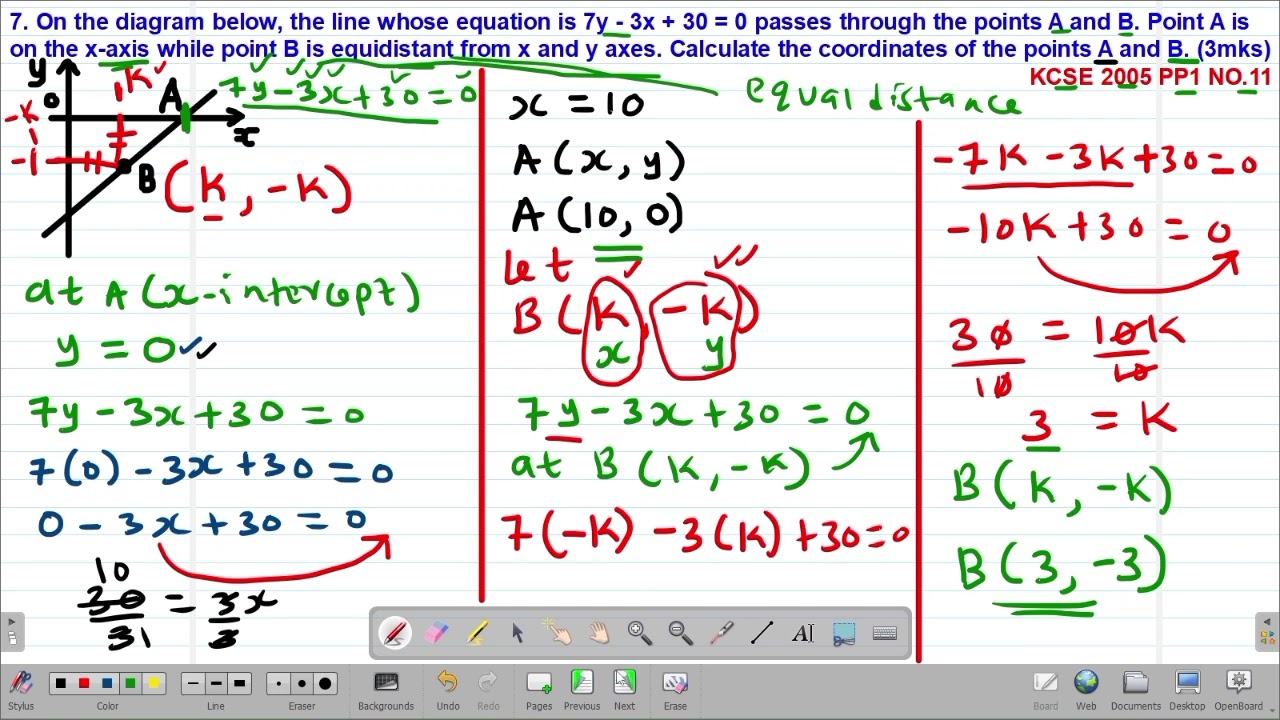 7. On the diagram below, the line whose equation is 7y - 3x + 30 = 0 passes through the points A and B. Point A is
on the x-axis while point B is equidistant from x and y axes. Calculate the coordinates of the points A and B. (3mks)
KCSE 2005 PP1 NO.11
equal distance
y
K
A
7y - 3x + 30 = 0
0
-K
x
-1
B (K, -K)
at A (x-intercept)
y = 0
7y - 3x + 30 = 0
7(0) - 3x + 30 = 0
0 - 3x + 30 = 0
10
30 = 3x
31 3
x = 10
A (x, y)
A (10, 0)
let
B (K, -K)
x y
7y - 3x + 30 = 0
at B (K, -K)
7(-K) - 3(K) + 30 = 0
-7K - 3K + 30 = 0
-10K + 30 = 0
30 = 10K
10 10
3 = K
B (K, -K)
B (3, -3)
AI
Stylus
Color
Line
Eraser
Backgrounds
Undo
Redo
Pages
Previous
Next
Erase
Board
Web
Documents
Desktop
OpenBoard